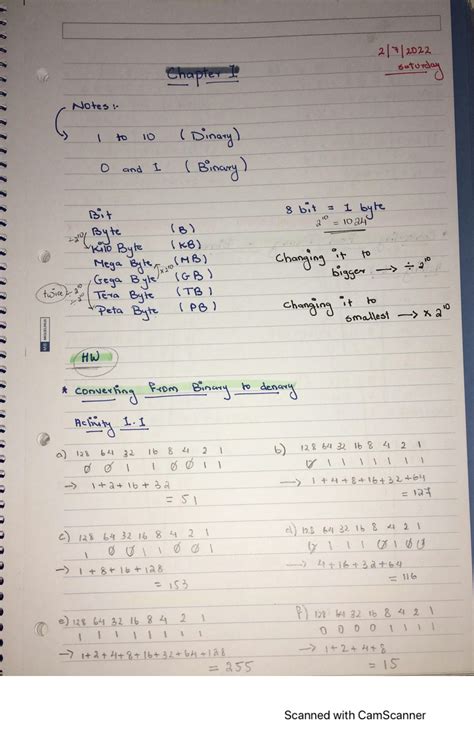 2/7/2022
saturday
Chapter 1
Notes :-
1 to 10 (Dinary)
0 and 1 (Binary)
Bit
8 bit = 1 byte
Byte (B)
2¹⁰ = 1024
÷2¹⁰
Kilo Byte (KB)
Mega Byte (MB)
×2¹⁰
Changing it to
Gega Byte (GB)
bigger → ÷ 2¹⁰
twice
÷2¹⁰
Tera Byte (TB)
Changing it to
Peta Byte (PB)
smallest → × 2¹⁰
HW
* Converting From Binary to denary
Activity 1.1
a) 128 64 32 16 8 4 2 1
0 0 1 1 0 0 1 1
→ 1+2+16+32
= 51
b) 128 64 32 16 8 4 2 1
0 1 1 1 1 1 1 1
→ 1+4+8+16+32+64
= 127
c) 128 64 32 16 8 4 2 1
1 0 0 1 1 0 0 1
→ 1+8+16+128
= 153
d) 128 64 32 16 8 4 2 1
0 1 1 1 0 1 0 0
→ 4+16+32+64
= 116
e) 128 64 32 16 8 4 2 1
1 1 1 1 1 1 1 1
→ 1+2+4+8+16+32+64+128
= 255
f) 128 64 32 16 8 4 2 1
0 0 0 0 1 1 1 1
→ 1+2+4+8
= 15
Scanned with CamScanner